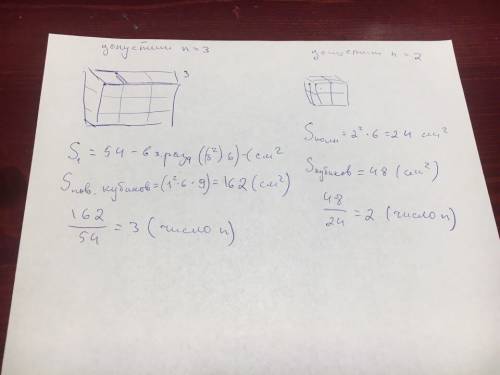 допустим n=3
3
S₁ = 54 - в 3 раза ((3²)·6) - (см²
Sпов. кубиков = (1²·6·9) = 162 (см²)
162/54 = 3 (число n)
допустим n=2
Sполн = 2²·6 = 24 см²
Sкубиков = 48 (см²)
48/24 = 2 (число n)